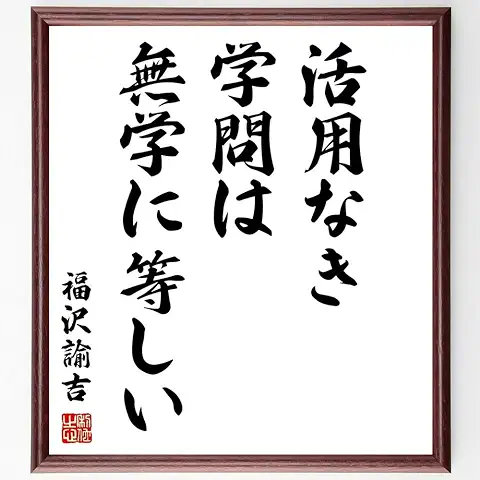 活用なき
学問は
無学に等しい
福沢諭吉